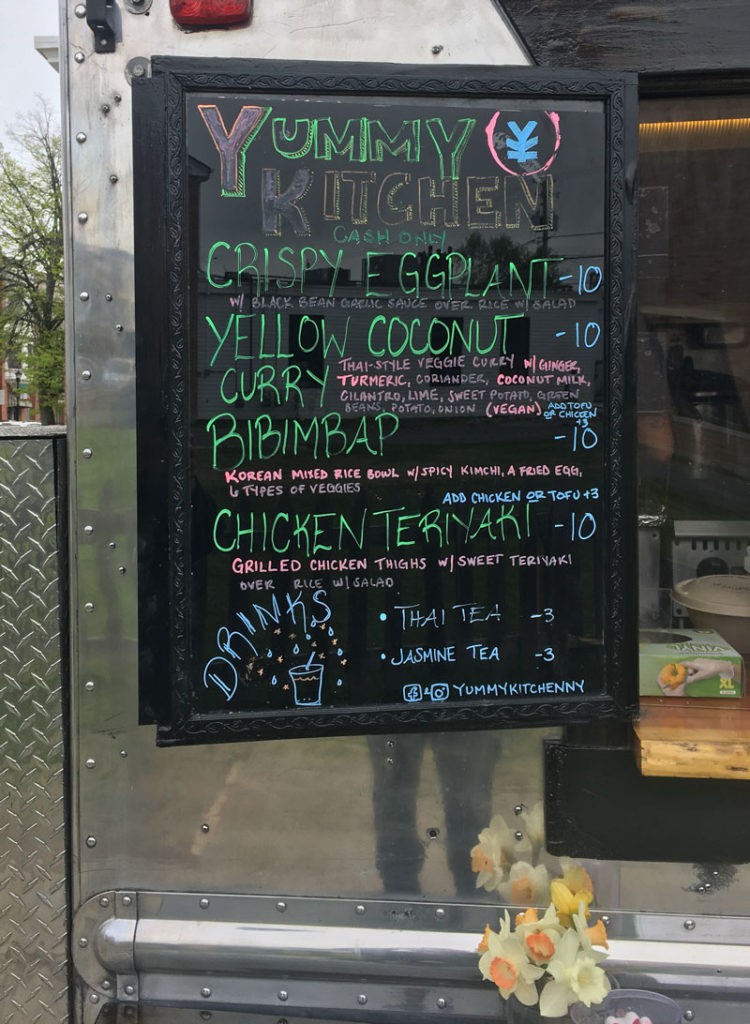 YUMMY ¥
KITCHEN
CASH ONLY
CRISPY EGGPLANT -10
W/ BLACK BEAN GARLIC SAUCE OVER RICE W/ SALAD
YELLOW COCONUT -10
CURRY THAI-STYLE VEGGIE CURRY W/ GINGER,
TURMERIC, CORIANDER, COCONUT MILK,
CILANTRO, LIME, SWEET POTATO, GREEN
BEANS, POTATO, ONION (VEGAN) ADD TOFU
OR CHICKEN
+3
BIBIMBAP -10
KOREAN MIXED RICE BOWL W/ SPICY KIMCHI, A FRIED EGG,
6 TYPES OF VEGGIES
ADD CHICKEN OR TOFU +3
CHICKEN TERIYAKI -10
GRILLED CHICKEN THIGHS W/ SWEET TERIYAKI
OVER RICE W/ SALAD
DRINKS
• THAI TEA -3
• JASMINE TEA -3
f & YUMMYKITCHENNY
XL